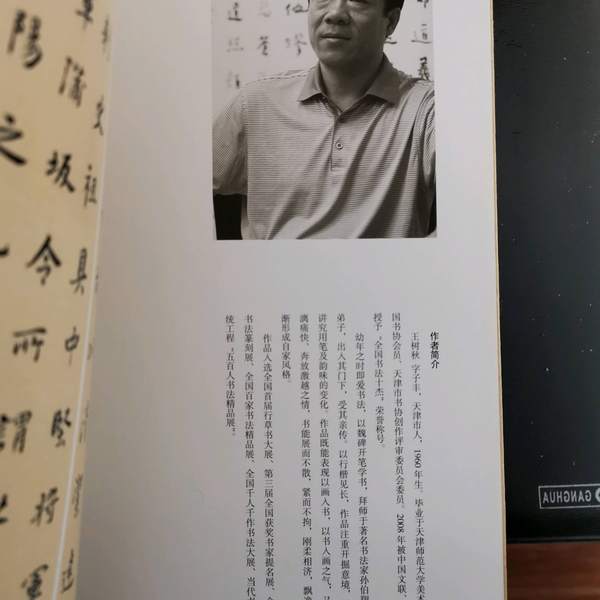 作者简介
王树秋 字子丰，天津市人，1960年生。毕业于天津师范大学美术
国书协会员、天津市书协创作评审委员会委员。2008年被中国文联、
授予“全国书法十杰”荣誉称号。
幼年之时即爱书法，以魏碑开笔学书，拜师于著名书法家孙伯翔
弟子，出入其门下，受其亲传。以行楷见长，作品注重开掘意境，
讲究用笔及韵味的变化。作品既能表现以画入书，以书入画之气，又
滴痛快、奔放激越之情，书能展而不散，紧而不拘，刚柔相济，飘逸
渐形成自家风格。
作品入选全国首届行草书大展、第三届全国获奖书家提名展、全
书法篆刻展、全国百家书法精品展、全国千人千作书法大展、当代
统工程“五百人书法精品展”。
陽之
蒲坂令所謂
祖具中堅將軍
GANGHUA